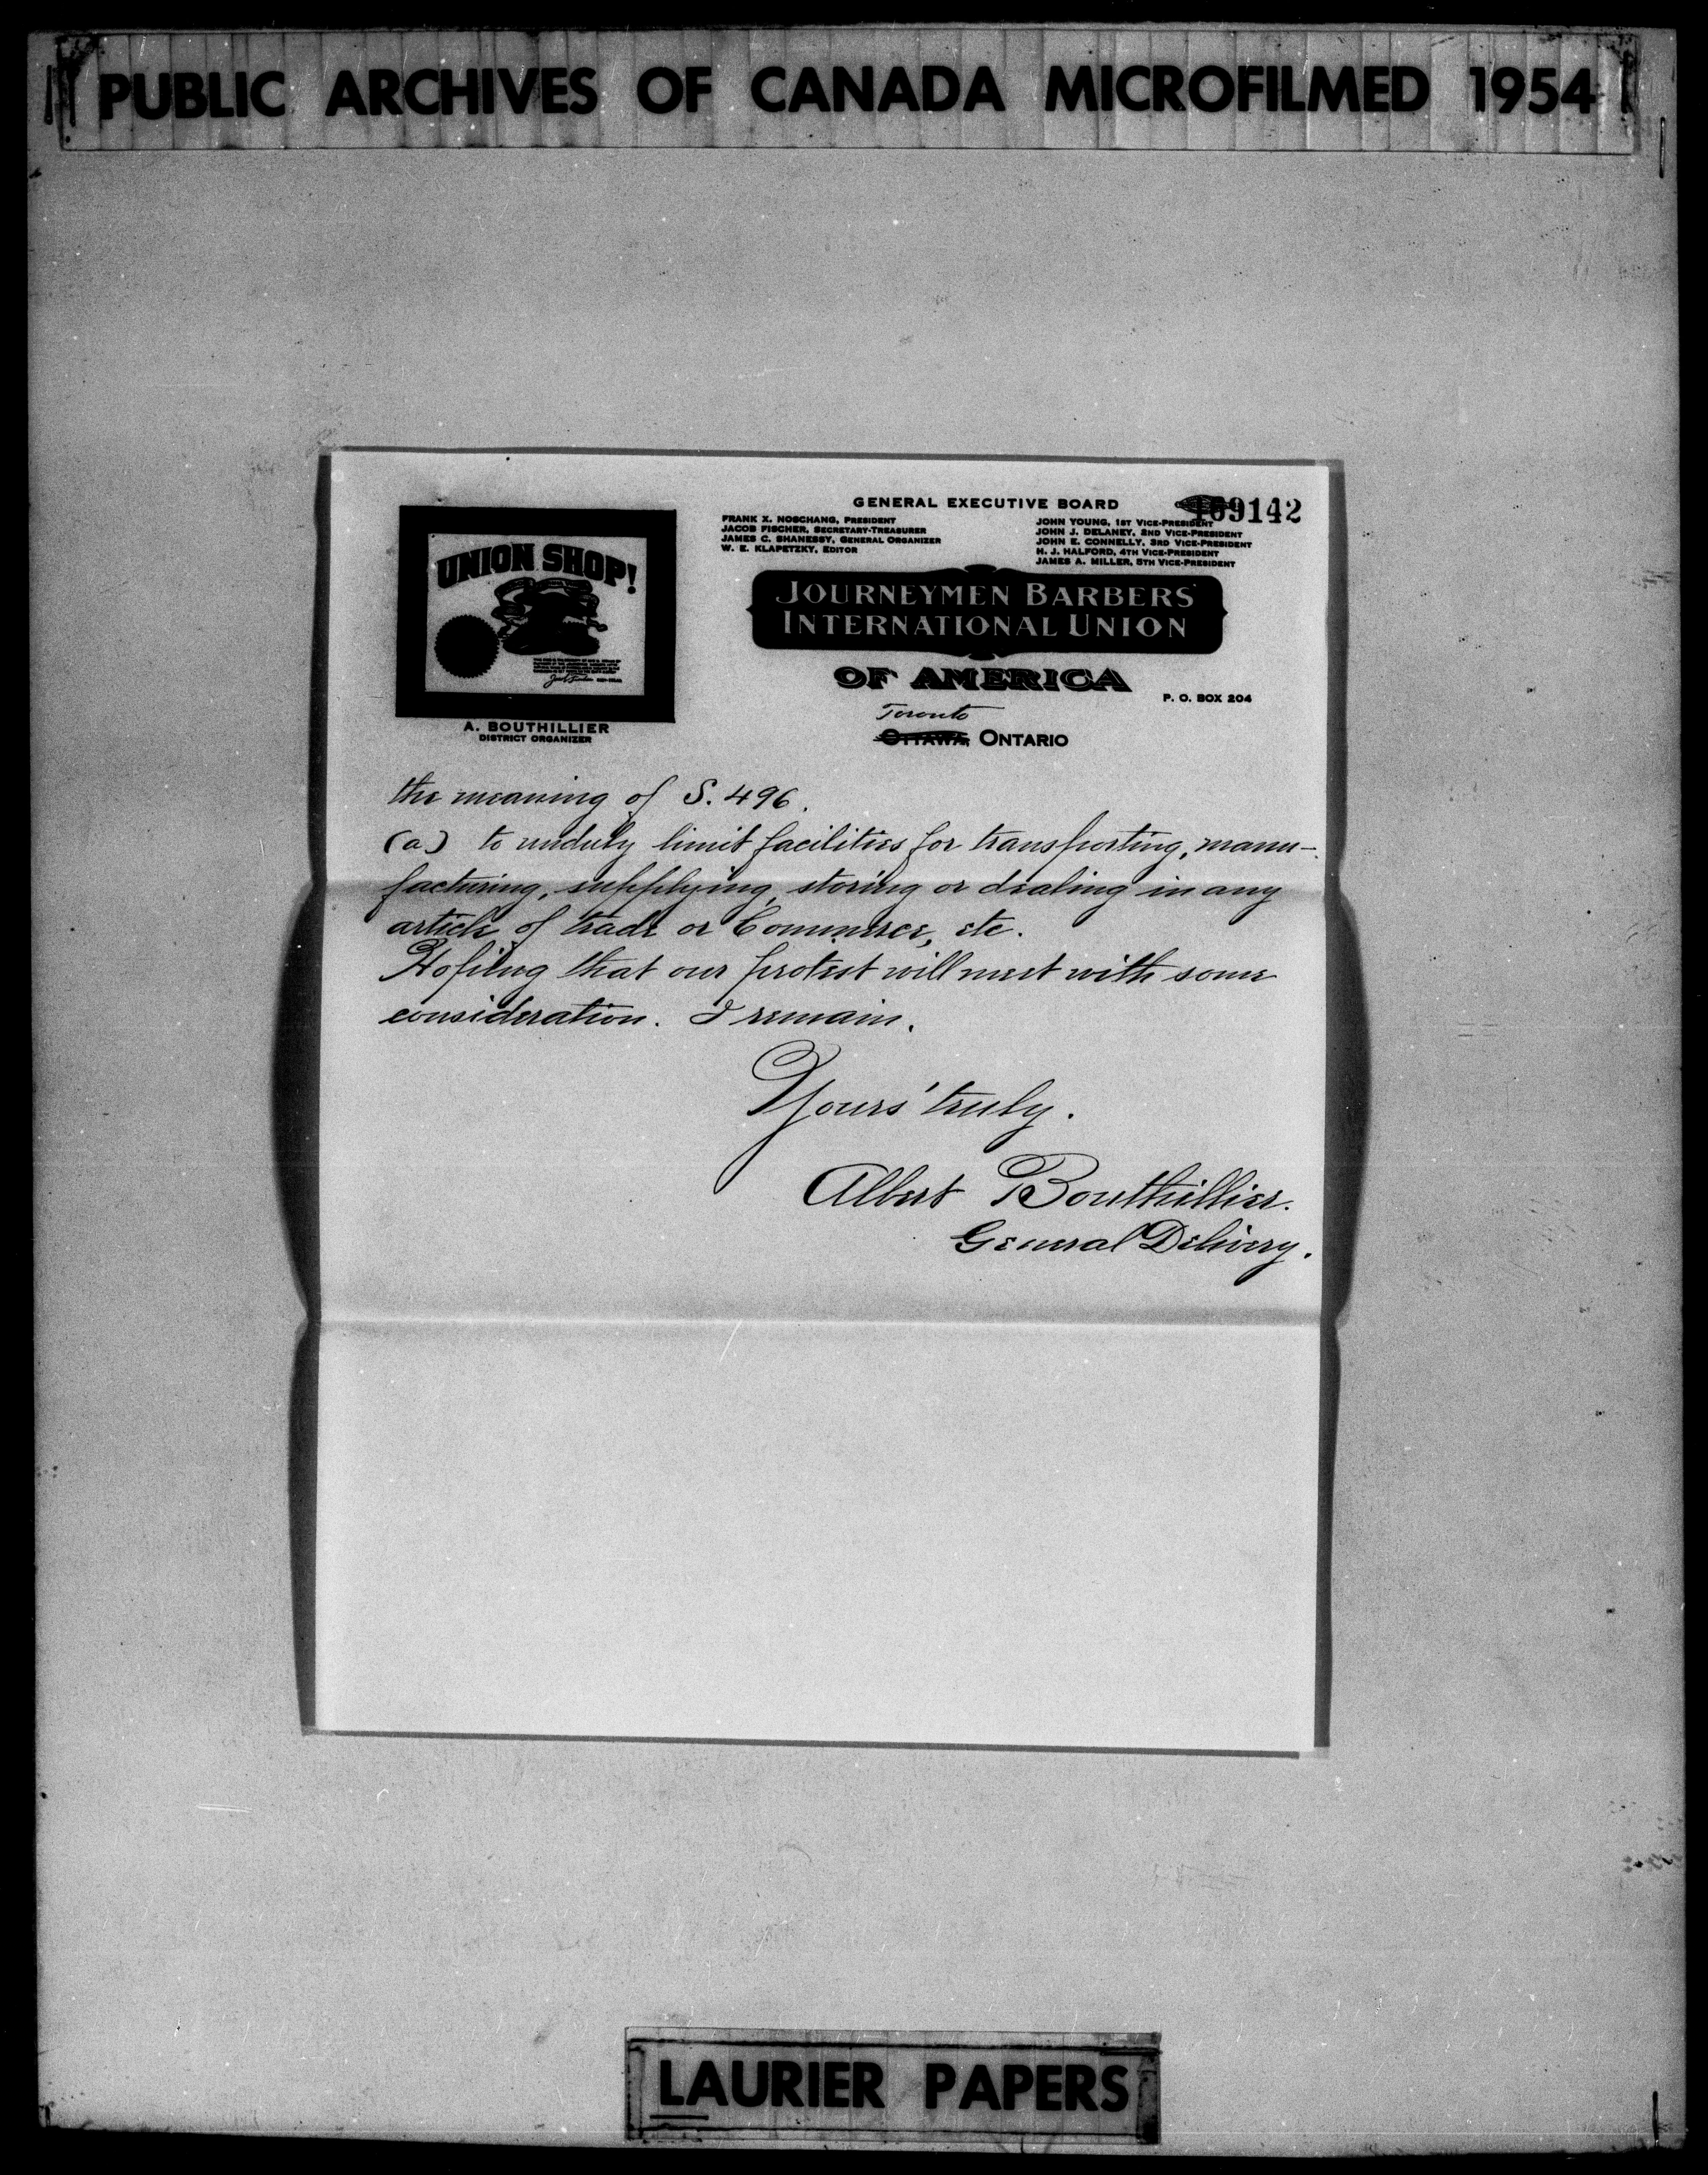 PUBLIC ARCHIVES OF CANADA MICROFILMED 1954
GENERAL EXECUTIVE BOARD
109142
FRANK X. NOSCHANG, PRESIDENT
JACOB FISCHER, SECRETARY-TREASURER
JAMES C. SHANESSY, GENERAL ORGANIZER
W. E. KLAPETZKY, EDITOR
JOHN YOUNG, 1ST VICE-PRESIDENT
JOHN J. DELANEY, 2ND VICE-PRESIDENT
JOHN E. CONNELLY, 3RD VICE-PRESIDENT
H. J. HALFORD, 4TH VICE-PRESIDENT
JAMES A. MILLER, 5TH VICE-PRESIDENT
UNION SHOP!
A. BOUTHILLIER
DISTRICT ORGANIZER
JOURNEYMEN BARBERS'
INTERNATIONAL UNION
OF AMERICA
P. O. BOX 204
Toronto
OTTAWA, ONTARIO
the meaning of S. 496.
(a) to unduly limit facilities for transporting, manu-
facturing, supplying, storing or dealing in any
article of trade or Commerce, etc.
Hoping that our protest will meet with some
consideration. I remain.
Yours' truly.
Albert Bouthillier.
General Delivery.
LAURIER PAPERS